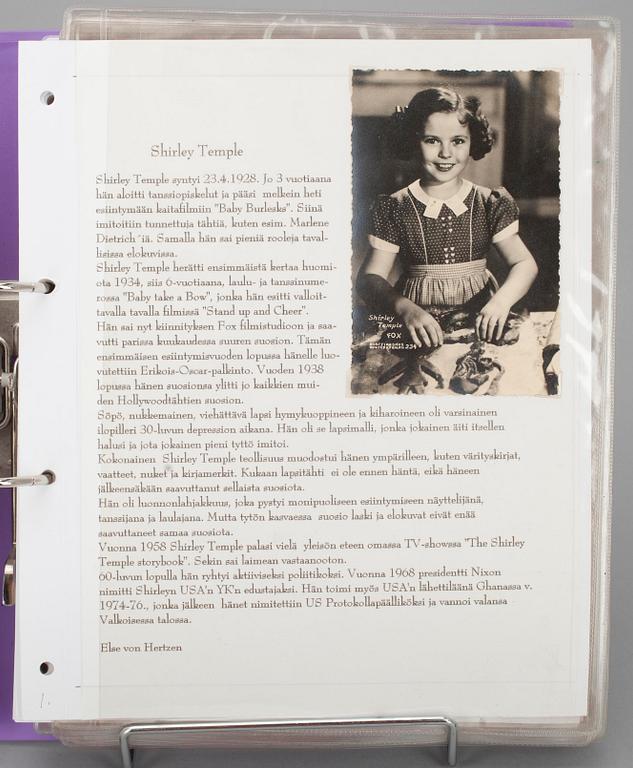 Shirley Temple
Shirley Temple syntyi 23.4.1928. Jo 3 vuotiaana
hän aloitti tanssiopiskelut ja pääsi melkein heti
esiintymään kaitafilmiin "Baby Burlesks". Siinä
imitoitiin tunnettuja tähtiä, kuten esim. Marlene
Dietrich´iä. Samalla hän sai pieniä rooleja taval-
lisissa elokuvissa.
Shirley Temple herätti ensimmäistä kertaa huomi-
ota 1934, siis 6-vuotiaana, laulu- ja tanssinume-
rossa "Baby take a Bow", jonka hän esitti valloit-
tavalla tavalla filmissä "Stand up and Cheer".
Hän sai nyt kiinnityksen Fox filmistudioon ja saa-
vutti parissa kuukaudessa suuren suosion. Tämän
ensimmäisen esiintymisvuoden lopussa hänelle luo-
vutettiin Erikois-Oscar-palkinto. Vuoden 1938
lopussa hänen suosionsa ylitti jo kaikkien mui-
den Hollywoodtähtien suosion.
Söpö, nukkemainen, viehättävä lapsi hymykuoppineen ja kiharoineen oli varsinainen
ilopilleri 30-luvun depression aikana. Hän oli se lapsimalli, jonka jokainen äiti itsellen
halusi ja jota jokainen pieni tyttö imitoi.
Kokonainen Shirley Temple teollisuus muodostui hänen ympärilleen, kuten värityskirjat,
vaatteet, nuket ja kirjamerkit. Kukaan lapsitähti ei ole ennen häntä, eikä häneen
jälkeensäkään saavuttanut sellaista suosiota.
Hän oli luonnonlahjakkuus, joka pystyi monipuoliseen esiintymiseen näyttelijänä,
tanssijana ja laulajana. Mutta tytön kasvaessa suosio laski ja elokuvat eivät enää
saavuttaneet samaa suosiota.
Vuonna 1958 Shirley Temple palasi vielä yleisön eteen omassa TV-showssa "The Shirley
Temple storybook". Sekin sai laimean vastaanooton.
60-luvun lopulla hän ryhtyi aktiiviseksi poliitikoksi. Vuonna 1968 presidentti Nixon
nimitti Shirleyn USA'n YK'n edustajaksi. Hän toimi myös USA'n lähettiläänä Ghanassa v.
1974-76., jonka jälkeen hänet nimitettiin US Protokollapäälliköksi ja vannoi valansa
Valkoisessa talossa.
Else von Hertzen
Shirley
Temple
FOX
234
1.